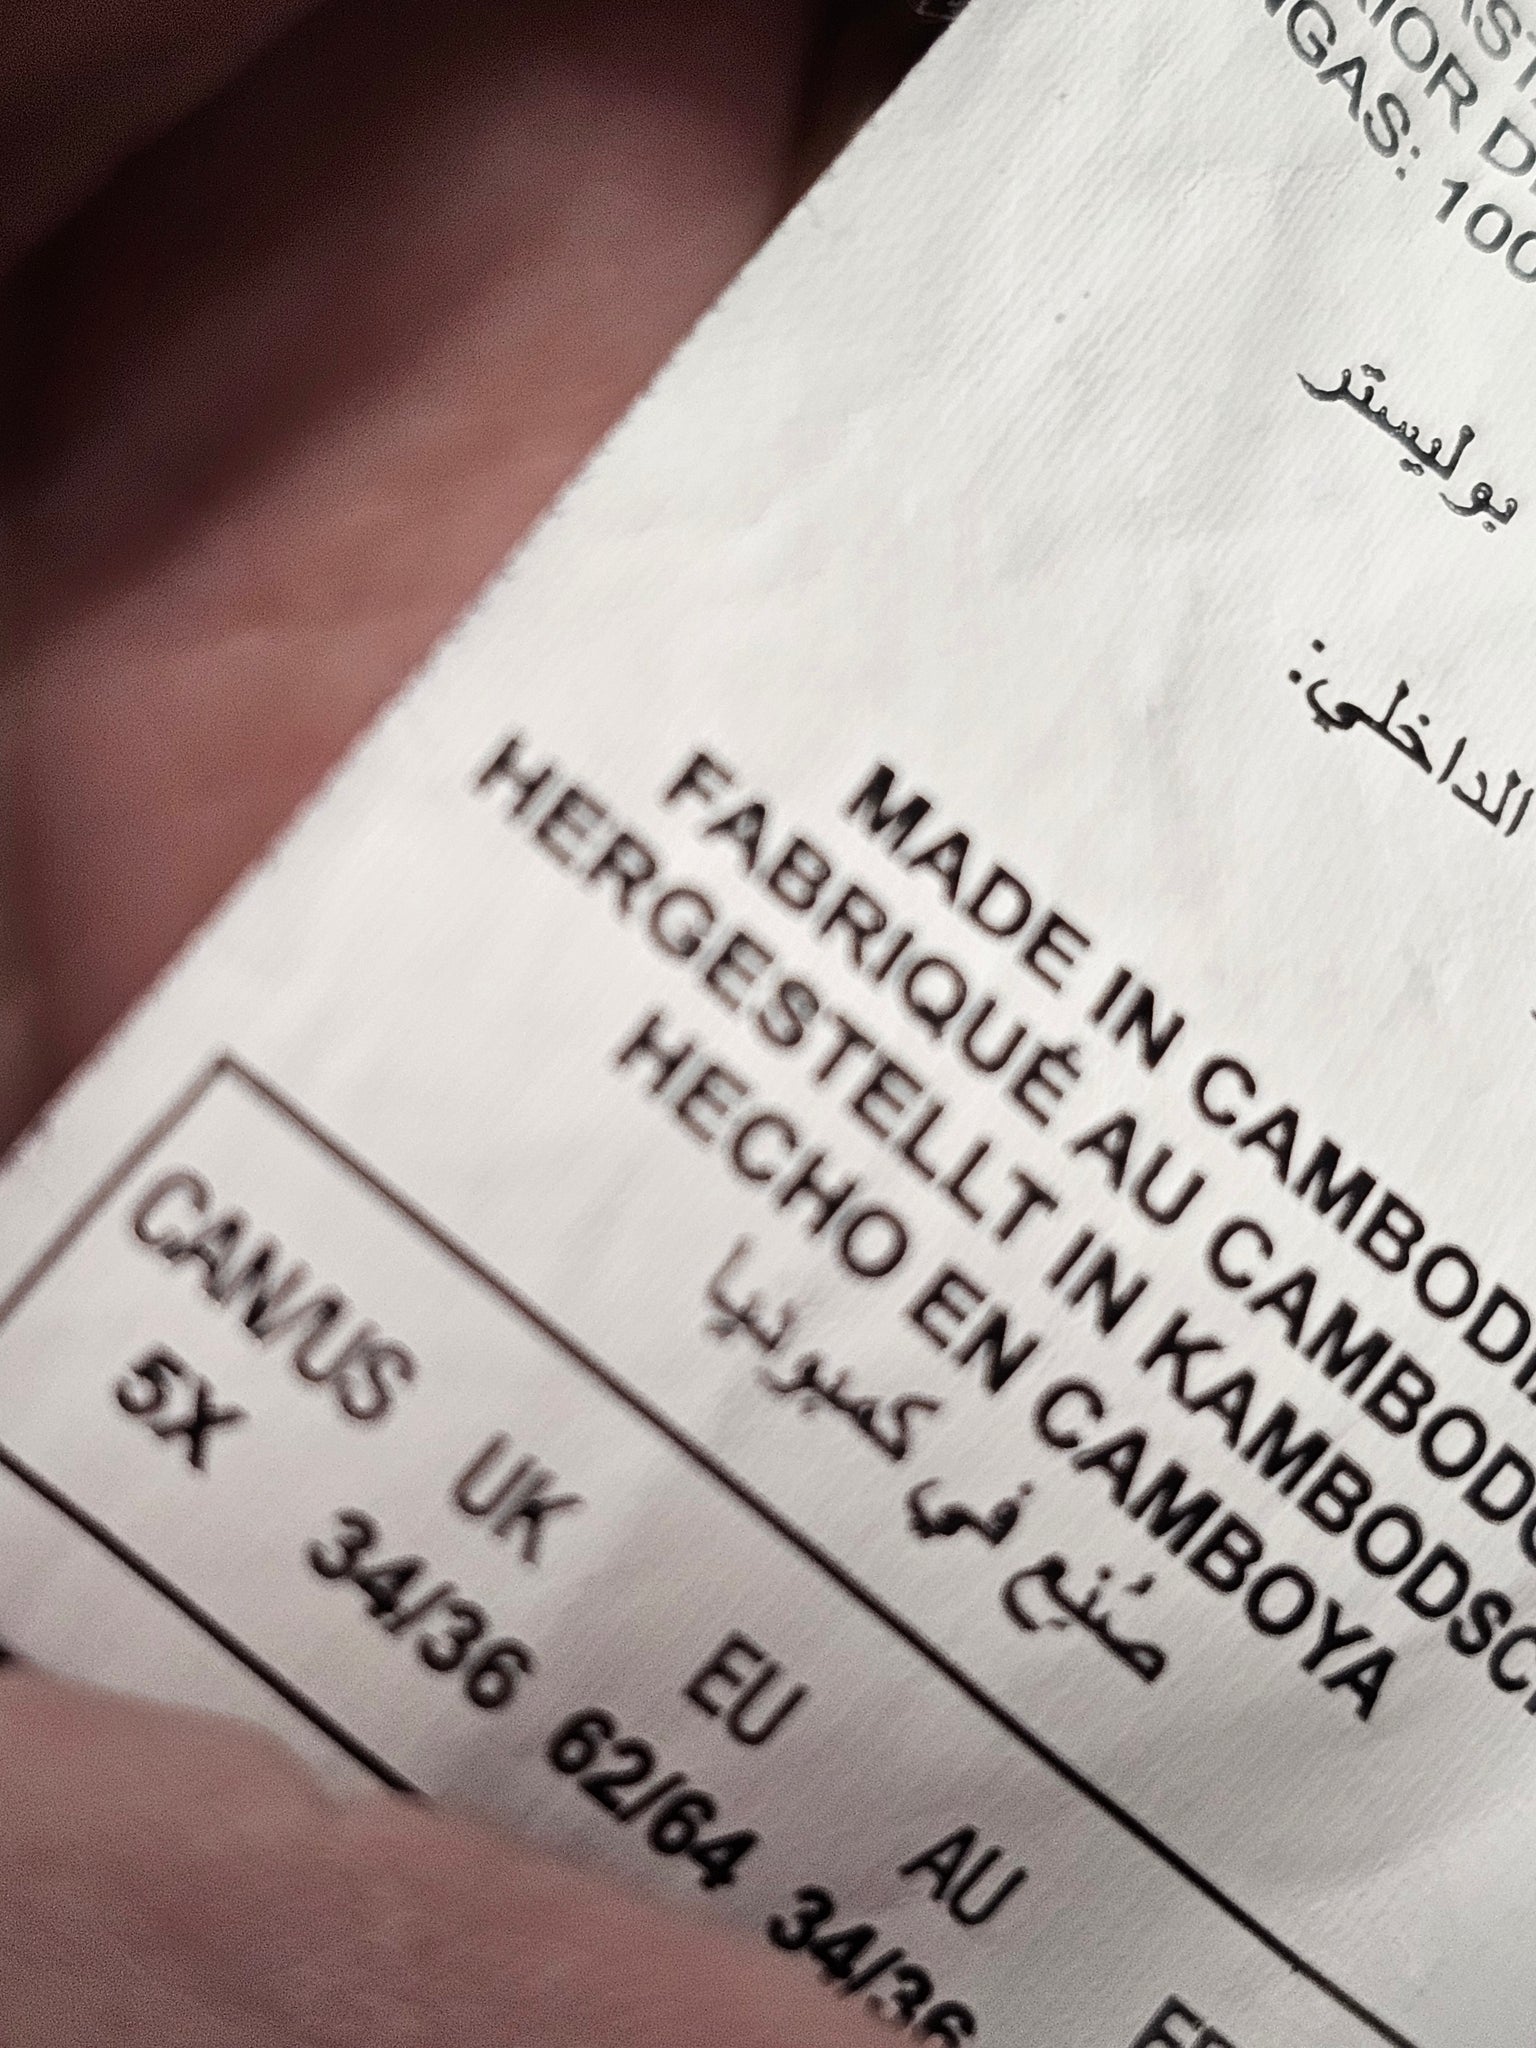 100
بوليستر
الداخلي:
MADE IN CAMBODI
FABRIQUÉ AU CAMBOD
HERGESTELLT IN KAMBODSC
HECHO EN CAMBOYA
صُنِع في كمبوديا
CAN/US UK EU AU
5X 34/36 62/64 34/36